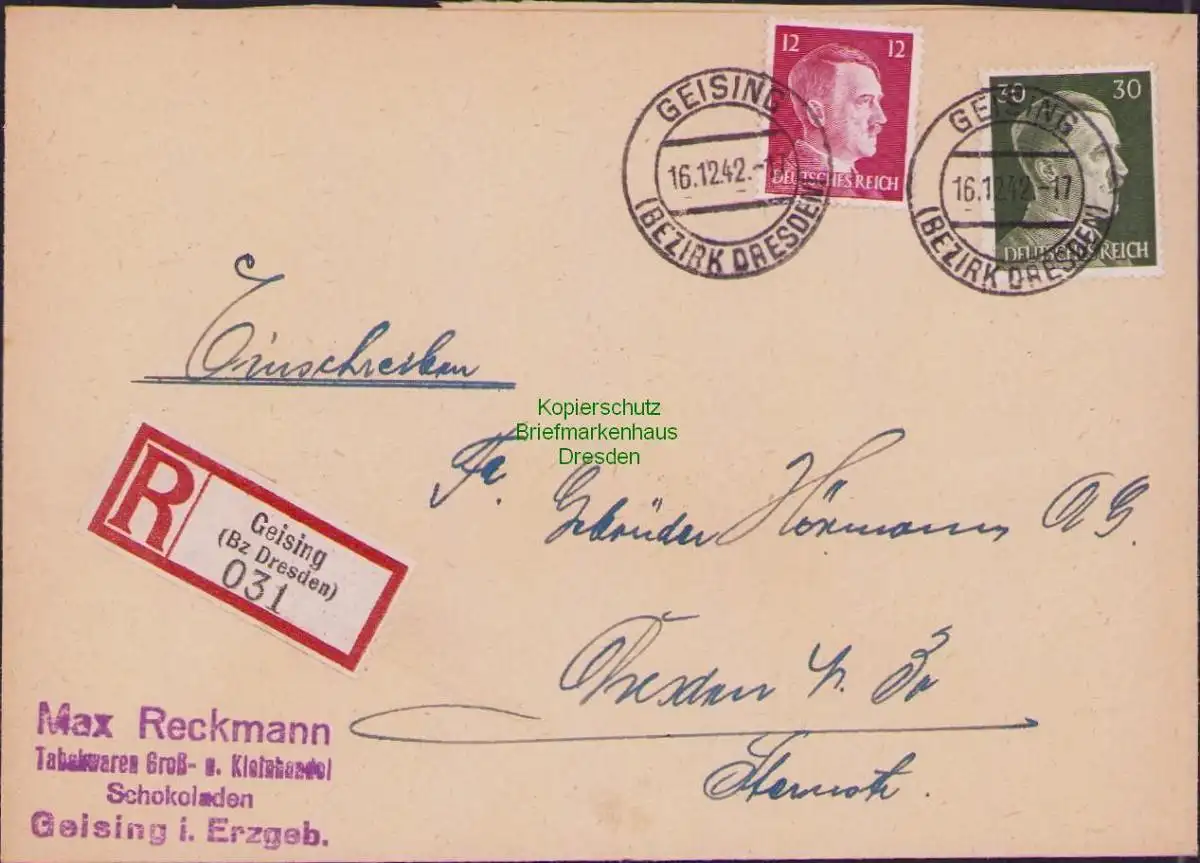 12 12
DEUTSCHES REICH
30 30
DEUTSCHES REICH
GEISING
16.12.42.-17
(BEZIRK DRESDEN)
GEISING
16.12.42.-17
(BEZIRK DRESDEN)
Einschreiben
Kopierschutz
Briefmarkenhaus
Dresden
Fa.
Gebrüder Hörmann AG.
R
Geising
(Bz Dresden)
031
Dresden N. 30
Sternstr.
Max Reckmann
Tabakwaren Groß- u. Kleinhandel
Schokoladen
Geising i. Erzgeb.